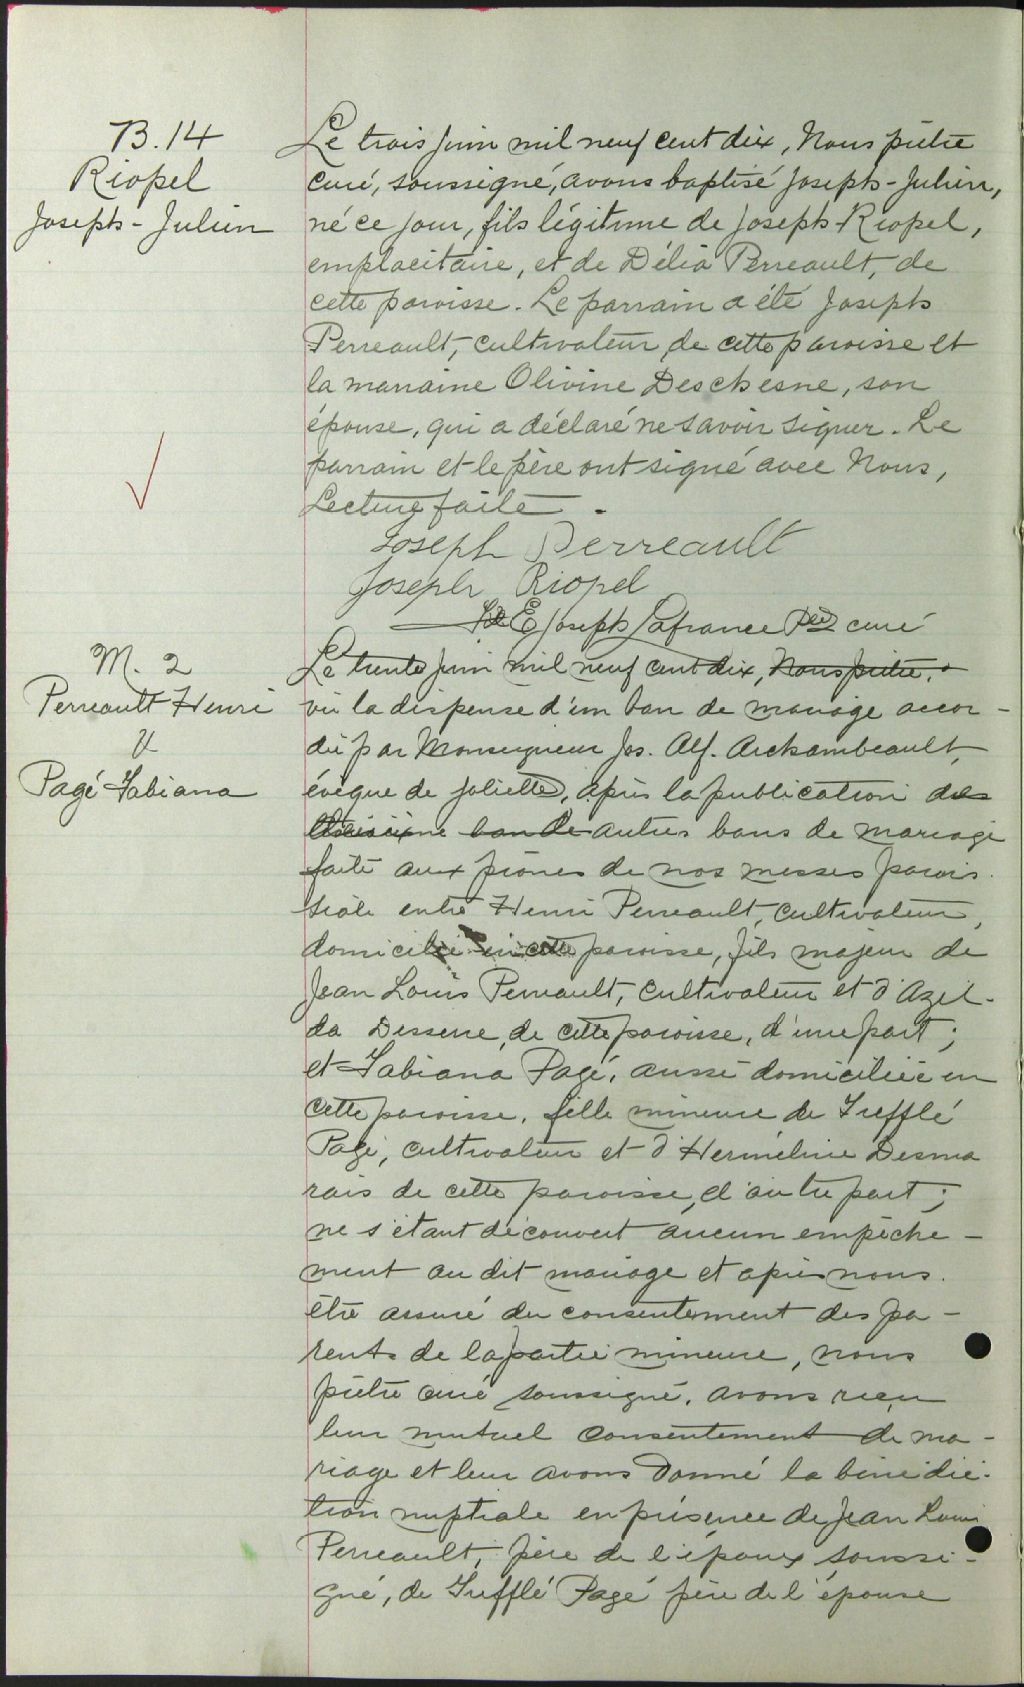 B. 14
Riopel
Joseph-Julien
Le trois juin mil neuf cent dix, Nous prêtre
curé, soussigné, avons baptisé Joseph-Julien,
né ce jour, fils légitime de Joseph Riopel,
emplacitaire, et de Délia Perreault, de
cette paroisse. Le parrain a été Joseph
Perreault, cultivateur de cette paroisse et
la marraine Olivine Deschesne, son
épouse, qui a déclaré ne savoir signer. Le
parrain et le père ont signé avec Nous,
Lecture faite.
Joseph Perreault
Joseph Riopel
Joseph Lafrance Ptre curé
M. 2
Perreault Henri
&
Pagé Fabiana
Le trente juin mil neuf cent dix, Nous prêtre,
vu la dispense d'un ban de mariage accor-
dé par Monseigneur Jos. Alf. Archambeault,
évêque de Joliette, après la publication des
troisième ban de autres bans de mariage
faite aux prônes de nos messes parois
siale entre Henri Perreault, cultivateur,
domicilié en cette paroisse, fils majeur de
Jean Louis Perreault, cultivateur et d'Azil-
da Desserre, de cette paroisse, d'une part;
et Fabiana Pagé, aussi domiciliée en
cette paroisse, fille mineure de Trefflé
Pagé, cultivateur et d'Herméline Desma
rais de cette paroisse, d'autre part;
ne s'étant découvert aucun empêche-
ment au dit mariage et après nous
être assuré du consentement des pa-
rents de la partie mineure, nous
prêtre curé soussigné, avons reçu
leur mutuel consentement de ma-
riage et leur avons donné la bénédic-
tion nuptiale en présence de Jean Louis
Perreault, père de l'époux soussi-
gné, de Trefflé Pagé père de l'épouse